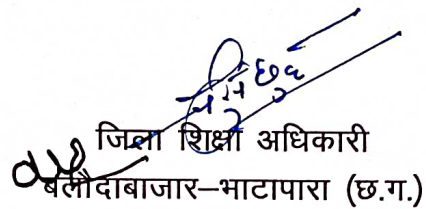 जिला शिक्षा अधिकारी
बलौदाबाजार–भाटापारा (छ.ग.)